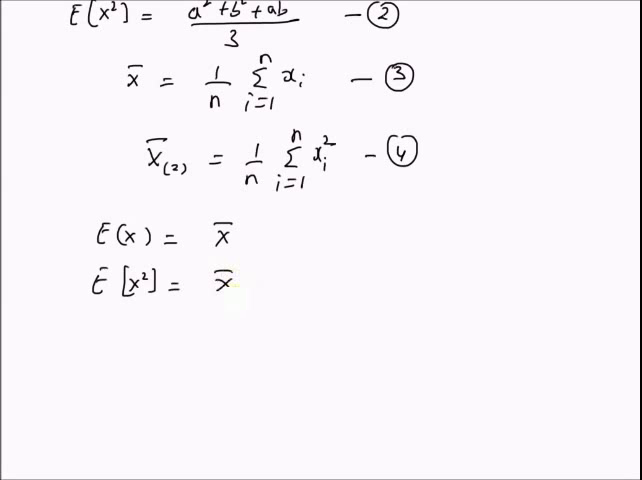 E[x²] = a² + b² + ab / 3 — ②
x̄ = 1/n Σ_{i=1}^{n} xᵢ — ③
X̄₍₂₎ = 1/n Σ_{i=1}^{n} xᵢ² — ④
E(x) = x̄
E[x²] = x̄